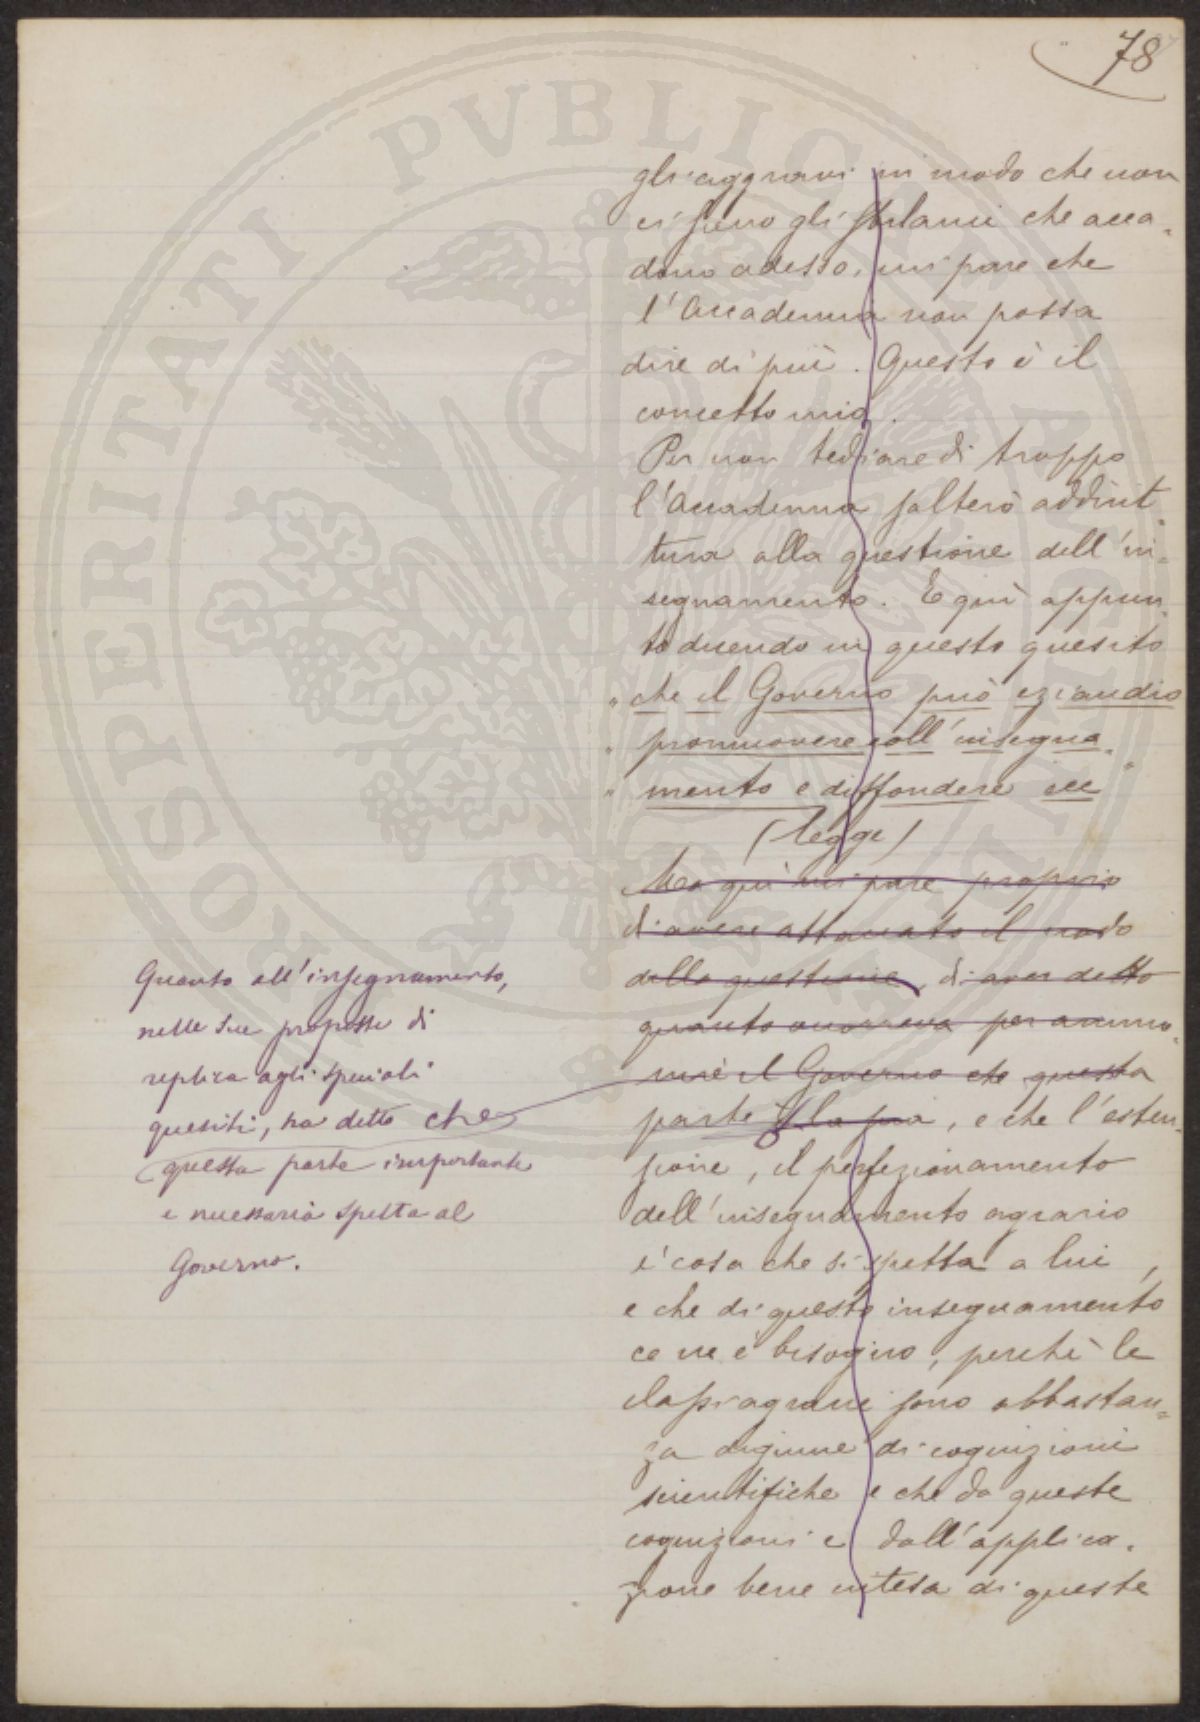 78
gli aggravi in modo che non
ci sieno gli sbilanci che acca-
dono adesso, mi pare che
l'Accademia non possa
dire di più. Questo è il
concetto mio.
Per non tediare di troppo
l'Accademia salterò addirit-
tura alla questione dell'in-
segnamento. E quì appun-
to dicendo in questo quesito
"che il Governo può eziandio
"promuovere coll'insegna-
"mento e diffondere ecc"
(legge)
Ma quì mi pare proprio
di avere attaccato il nodo
della questione, di aver detto
quanto occorreva per ammo-
nire il Governo che questa
parte, e che l'esten-
sione, il perfezionamento
dell'insegnamento agrario
è cosa che si spetta a lui,
e che di questo insegnamento
ce ne è bisogno, perchè le
classi agrarie sono abbastan-
za digiune di cognizioni
scientifiche e che da queste
cognizioni e dall'applica-
zione bene intesa di queste
Quanto all'insegnamento,
nelle sue proposte di
replica agli speciali
quesiti, ha detto che
questa parte importante
e necessaria spetta al
Governo.
PROSPERITATI PVBLICAE AVGENDAE